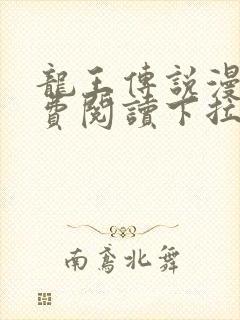 龍王傳說漫
費閱讀下拉
南鳶北舞